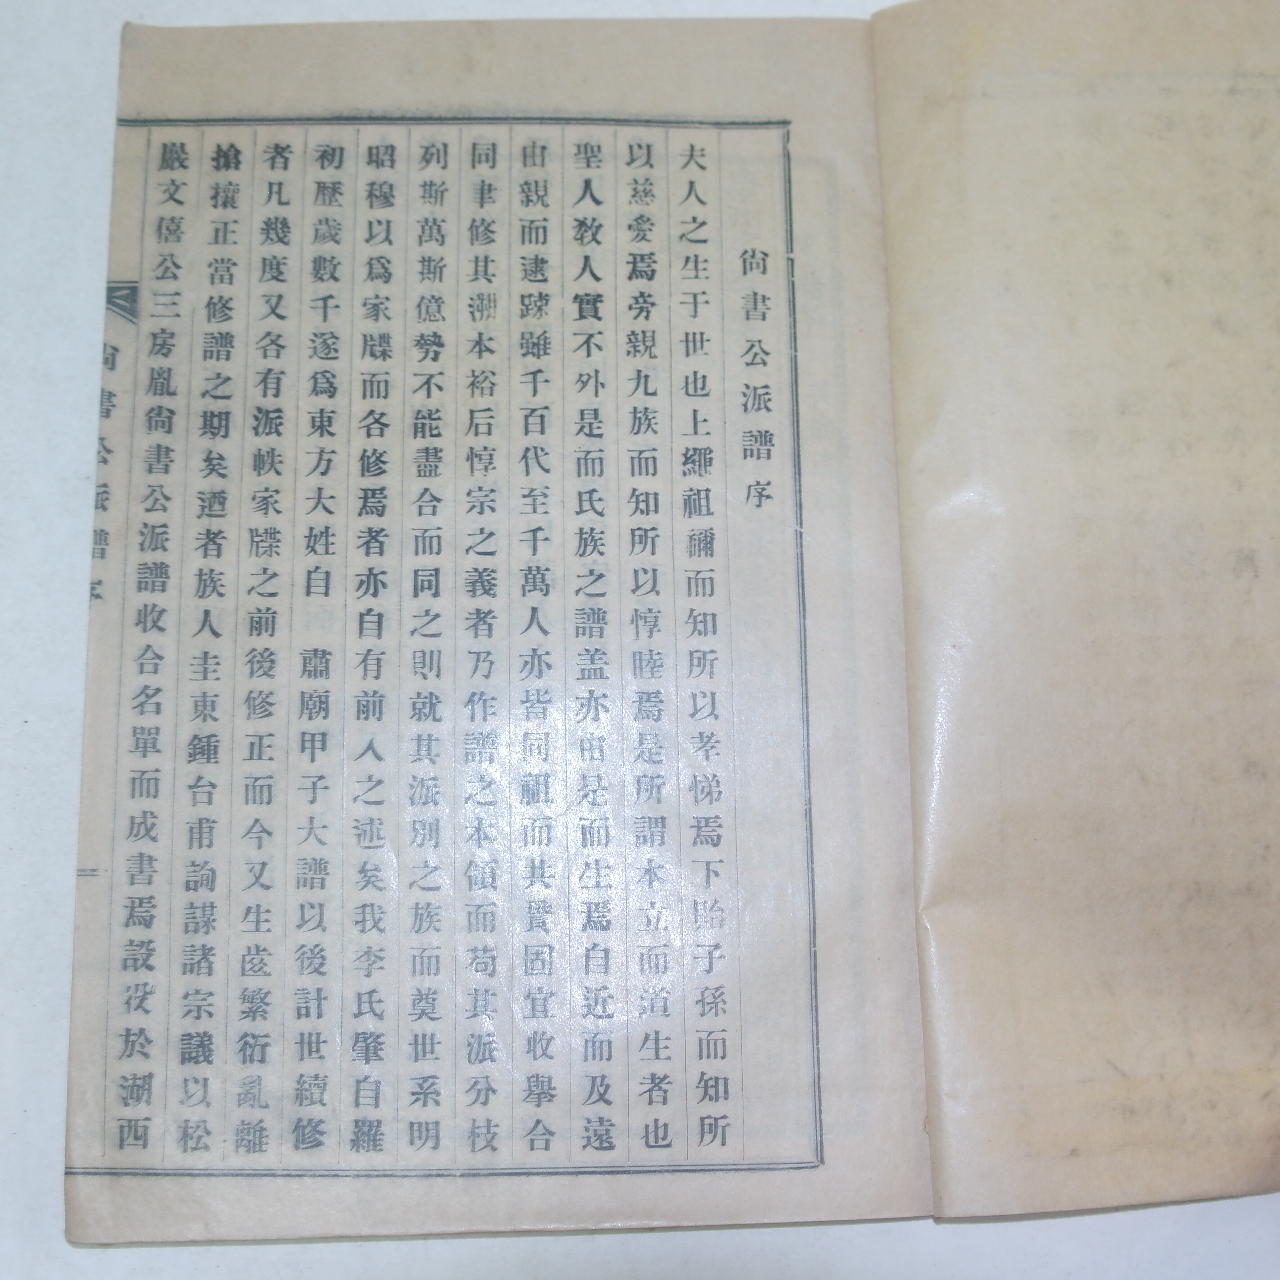 尙書公派譜序
夫人之生于世也上繩祖禰而知所以孝悌焉下貽子孫而知所
以慈愛焉旁親九族而知所以惇睦焉是所謂本立而道生者也
聖人敎人實不外是而氏族之譜盖亦由是而生焉自近而及遠
由親而逮踈雖千百代至千萬人亦皆同祖而共貫固宜收擧合
同聿修其溯本裕后惇宗之義者乃作譜之本領而苟其派分枝
列斯萬斯億勢不能盡合而同之則就其派別之族而奠世系明
昭穆以爲家牒而各修焉者亦自有前人之述矣我李氏肇自羅
初歷歲數千遂爲東方大姓自 肅廟甲子大譜以後計世續修
者凡幾度又各有派帙家牒之前後修正而今又生齒繁衍亂離
搶攘正當修譜之期矣迺者族人圭東鍾台甫詢謀諸宗議以松
巖文僖公三房胤尙書公派譜收合名單而成書焉設役於湖西
尙書公派譜序